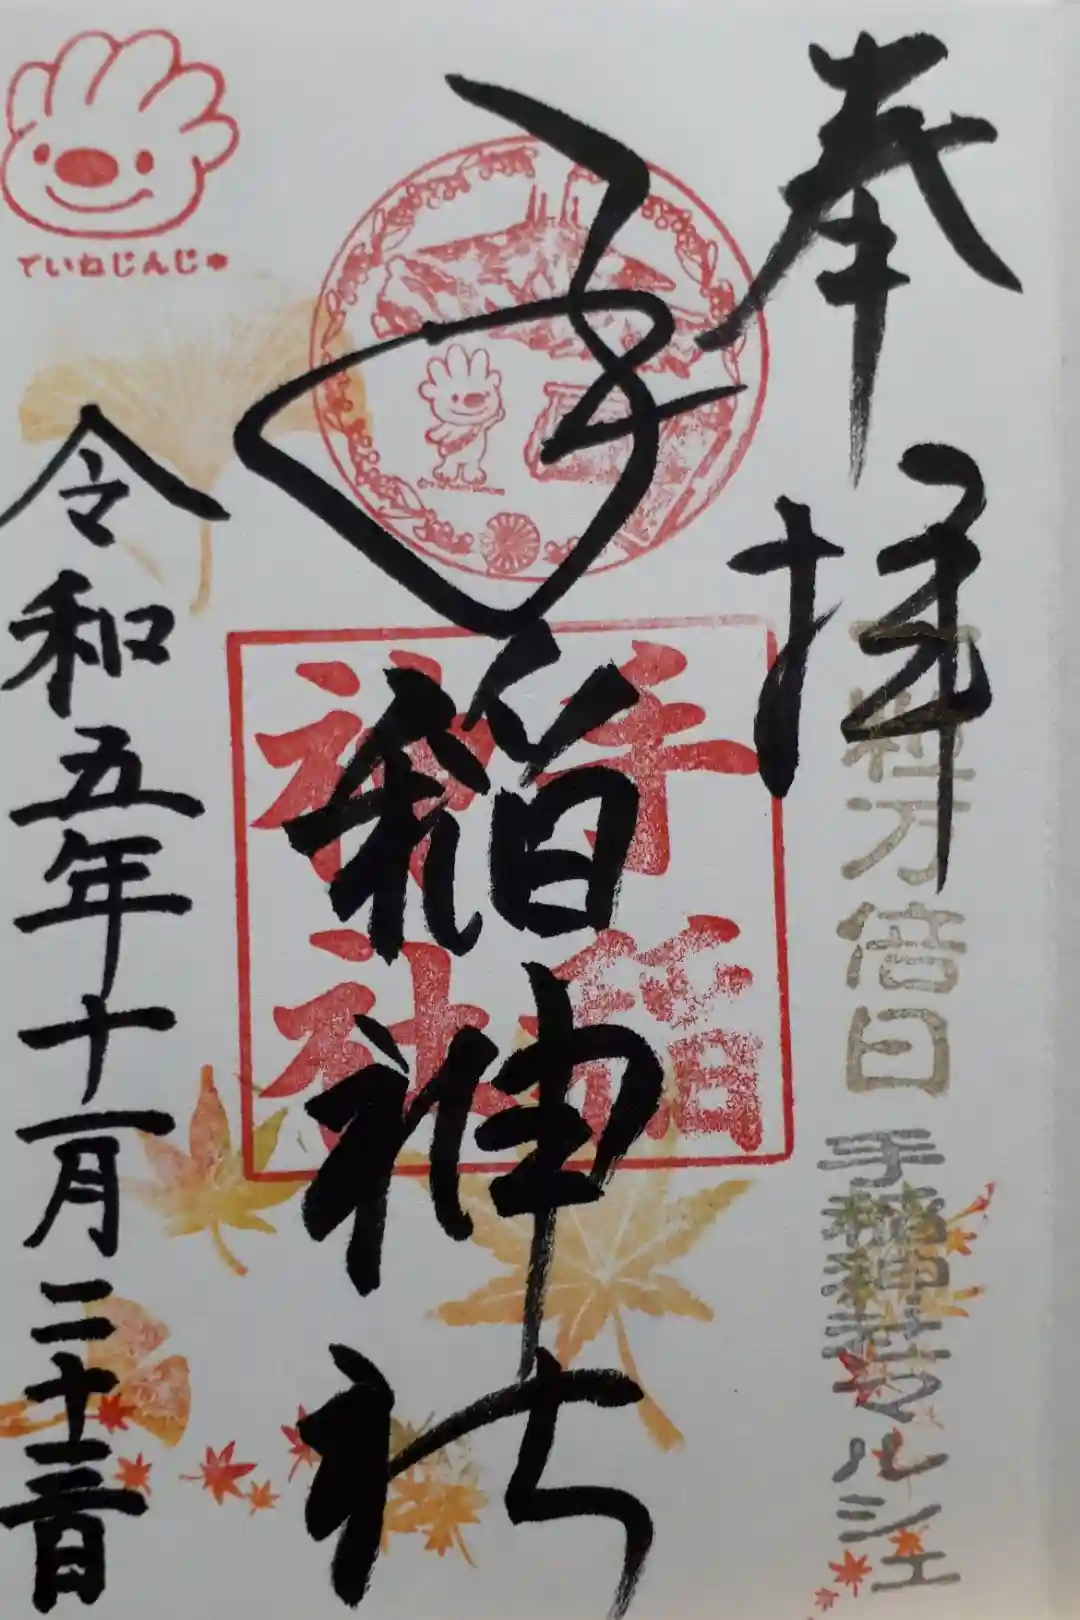 奉拝
一粒万倍日 手稲神社マルシェ
手稲神社
手稲
神社
ていねじんじゃ
令和五年十一月二十三日